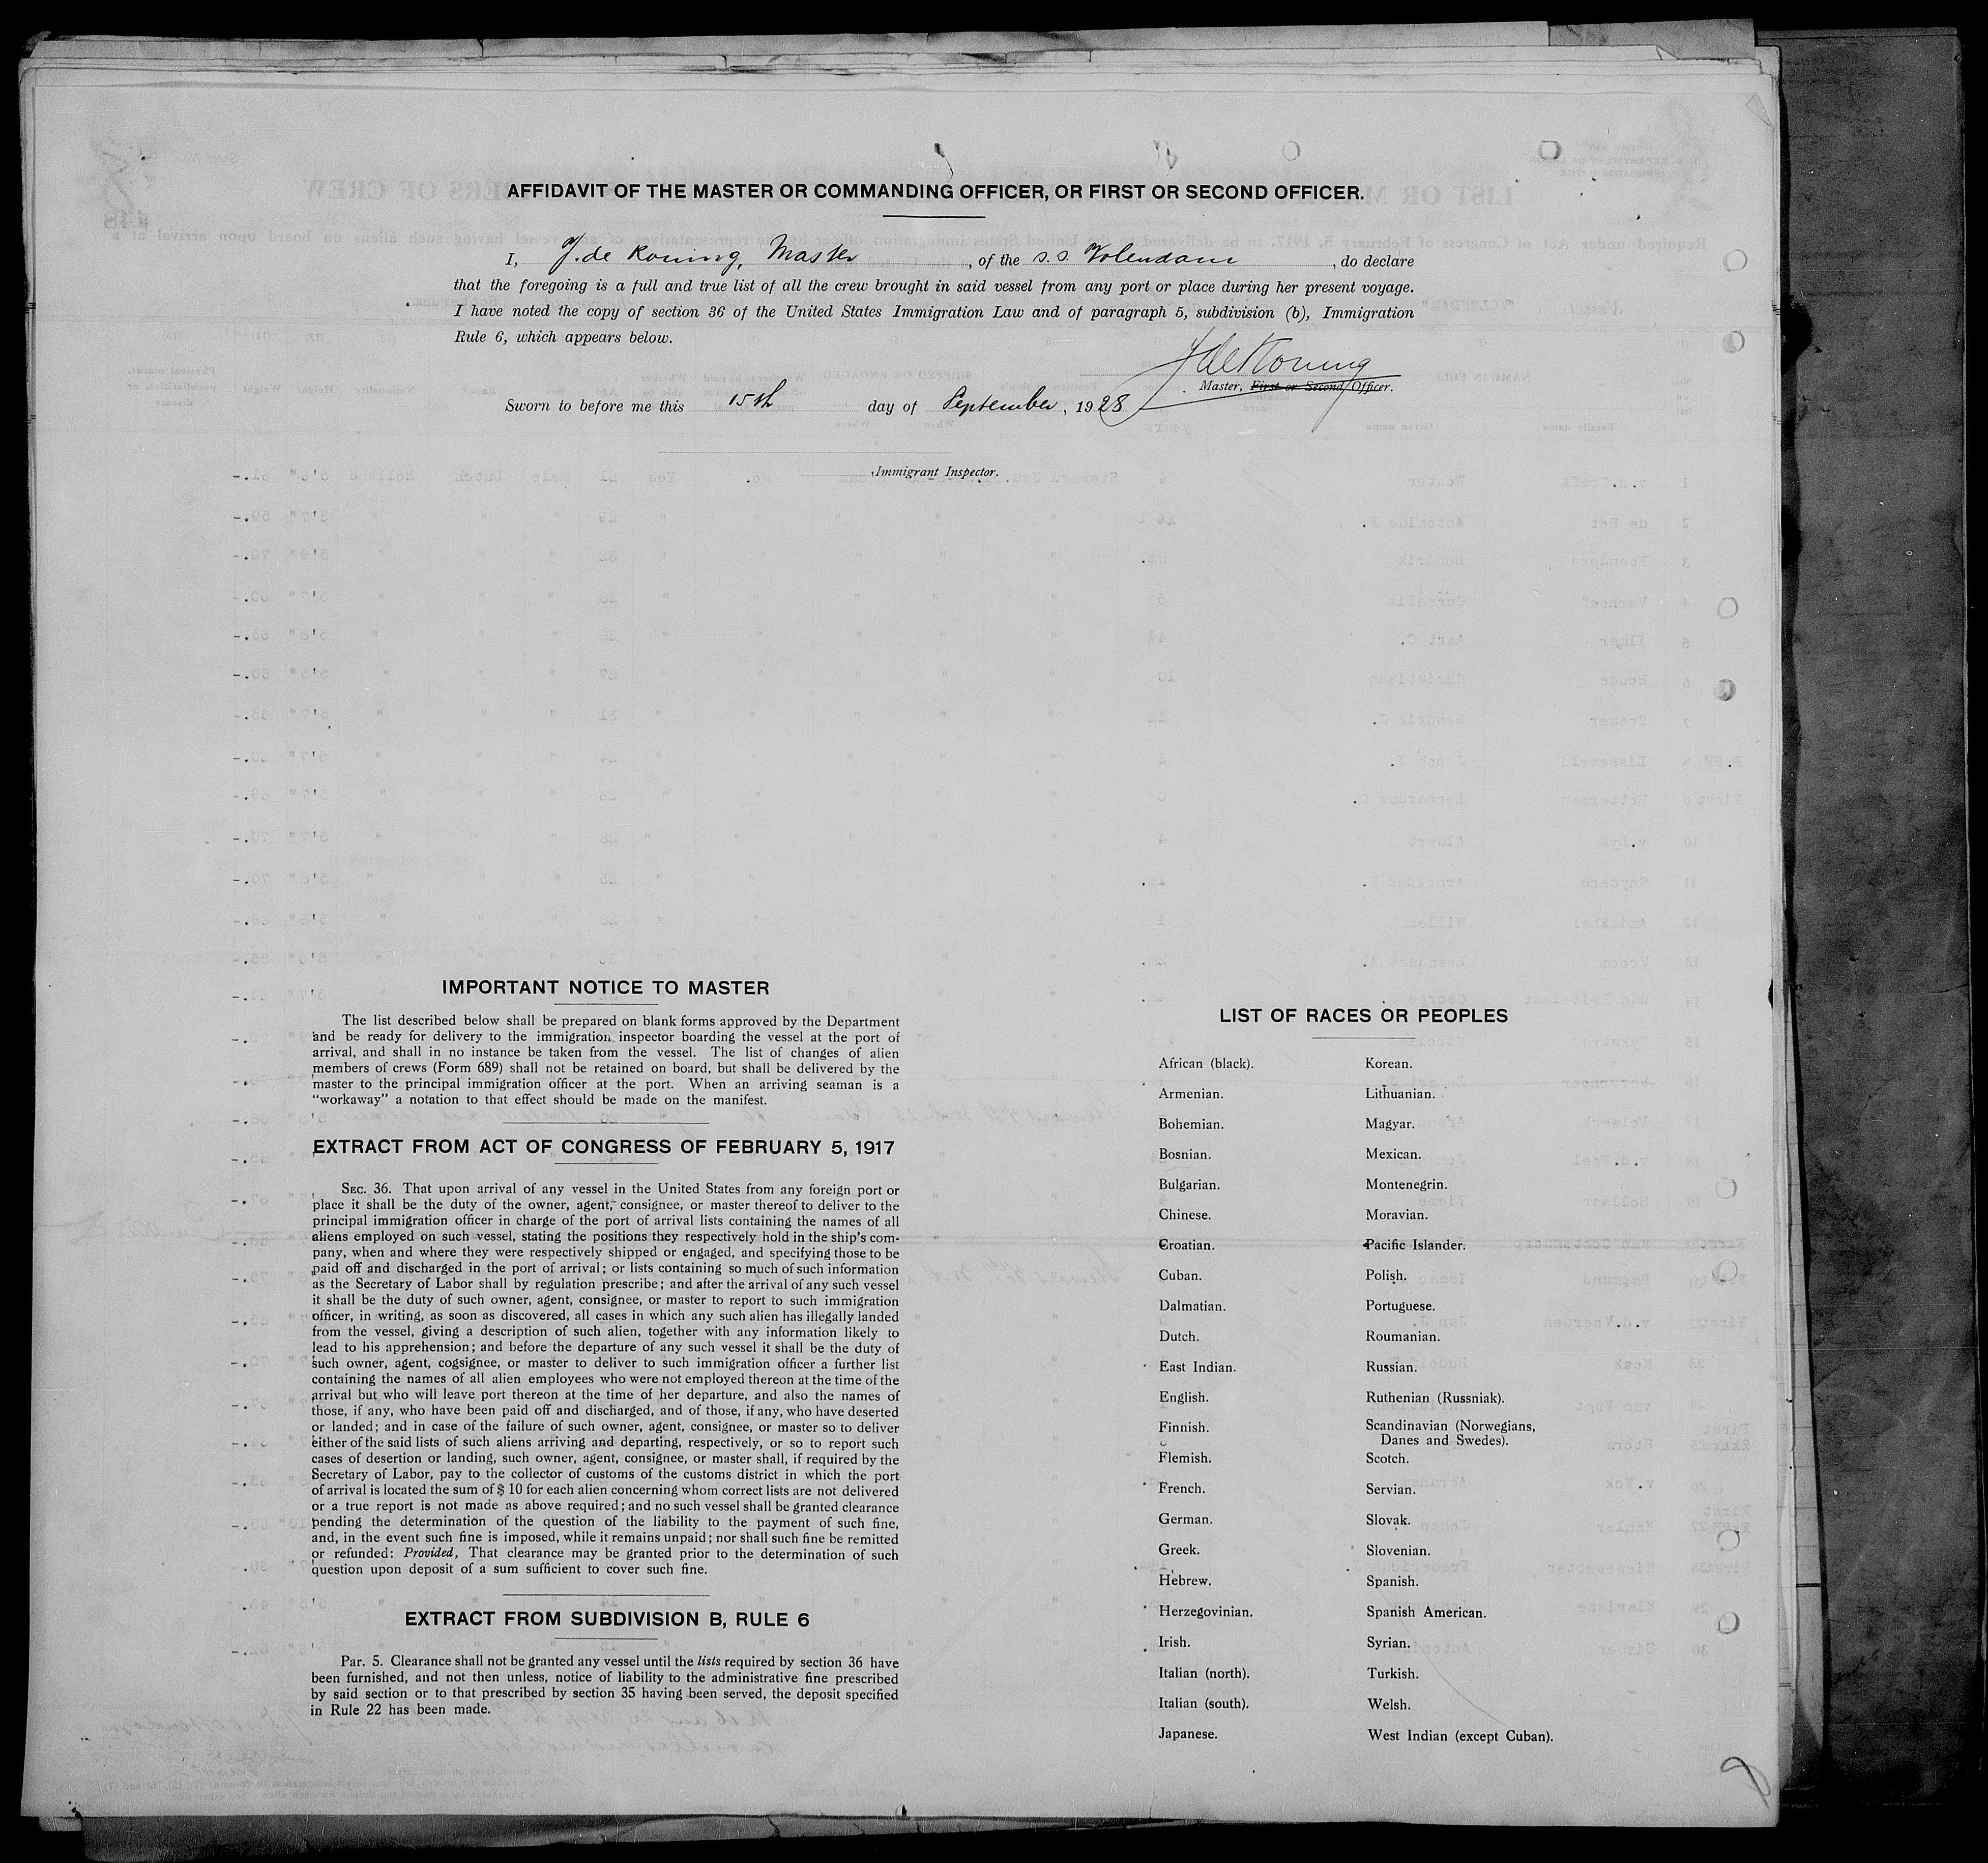 AFFIDAVIT OF THE MASTER OR COMMANDING OFFICER, OR FIRST OR SECOND OFFICER.
I, J. de Koning, Master, of the s.s. Volendam, do declare
that the foregoing is a full and true list of all the crew brought in said vessel from any port or place during her present voyage.
I have noted the copy of section 36 of the United States Immigration Law and of paragraph 5, subdivision (b), Immigration
Rule 6, which appears below.
J de Koning
Master, First or Second Officer.
Sworn to before me this 15th day of September, 1928
Immigrant Inspector.
IMPORTANT NOTICE TO MASTER
The list described below shall be prepared on blank forms approved by the Department
and be ready for delivery to the immigration inspector boarding the vessel at the port of
arrival, and shall in no instance be taken from the vessel. The list of changes of alien
members of crews (Form 689) shall not be retained on board, but shall be delivered by the
master to the principal immigration officer at the port. When an arriving seaman is a
“workaway” a notation to that effect should be made on the manifest.
EXTRACT FROM ACT OF CONGRESS OF FEBRUARY 5, 1917
SEC. 36. That upon arrival of any vessel in the United States from any foreign port or
place it shall be the duty of the owner, agent, consignee, or master thereof to deliver to the
principal immigration officer in charge of the port of arrival lists containing the names of all
aliens employed on such vessel, stating the positions they respectively hold in the ship's com-
pany, when and where they were respectively shipped or engaged, and specifying those to be
paid off and discharged in the port of arrival; or lists containing so much of such information
as the Secretary of Labor shall by regulation prescribe; and after the arrival of any such vessel
it shall be the duty of such owner, agent, consignee, or master to report to such immigration
officer, in writing, as soon as discovered, all cases in which any such alien has illegally landed
from the vessel, giving a description of such alien, together with any information likely to
lead to his apprehension; and before the departure of any such vessel it shall be the duty of
such owner, agent, cogsignee, or master to deliver to such immigration officer a further list
containing the names of all alien employees who were not employed thereon at the time of the
arrival but who will leave port thereon at the time of her departure, and also the names of
those, if any, who have been paid off and discharged, and of those, if any, who have deserted
or landed; and in case of the failure of such owner, agent, consignee, or master so to deliver
either of the said lists of such aliens arriving and departing, respectively, or so to report such
cases of desertion or landing, such owner, agent, consignee, or master shall, if required by the
Secretary of Labor, pay to the collector of customs of the customs district in which the port
of arrival is located the sum of $ 10 for each alien concerning whom correct lists are not delivered
or a true report is not made as above required; and no such vessel shall be granted clearance
pending the determination of the question of the liability to the payment of such fine,
and, in the event such fine is imposed, while it remains unpaid; nor shall such fine be remitted
or refunded: Provided, That clearance may be granted prior to the determination of such
question upon deposit of a sum sufficient to cover such fine.
EXTRACT FROM SUBDIVISION B, RULE 6
Par. 5. Clearance shall not be granted any vessel until the lists required by section 36 have
been furnished, and not then unless, notice of liability to the administrative fine prescribed
by said section or to that prescribed by section 35 having been served, the deposit specified
in Rule 22 has been made.
LIST OF RACES OR PEOPLES
African (black).
Armenian.
Bohemian.
Bosnian.
Bulgarian.
Chinese.
Croatian.
Cuban.
Dalmatian.
Dutch.
East Indian.
English.
Finnish.
Flemish.
French.
German.
Greek.
Hebrew.
Herzegovinian.
Irish.
Italian (north).
Italian (south).
Japanese.
Korean.
Lithuanian.
Magyar.
Mexican.
Montenegrin.
Moravian.
Pacific Islander.
Polish.
Portuguese.
Roumanian.
Russian.
Ruthenian (Russniak).
Scandinavian (Norwegians,
Danes and Swedes).
Scotch.
Servian.
Slovak.
Slovenian.
Spanish.
Spanish American.
Syrian.
Turkish.
Welsh.
West Indian (except Cuban).